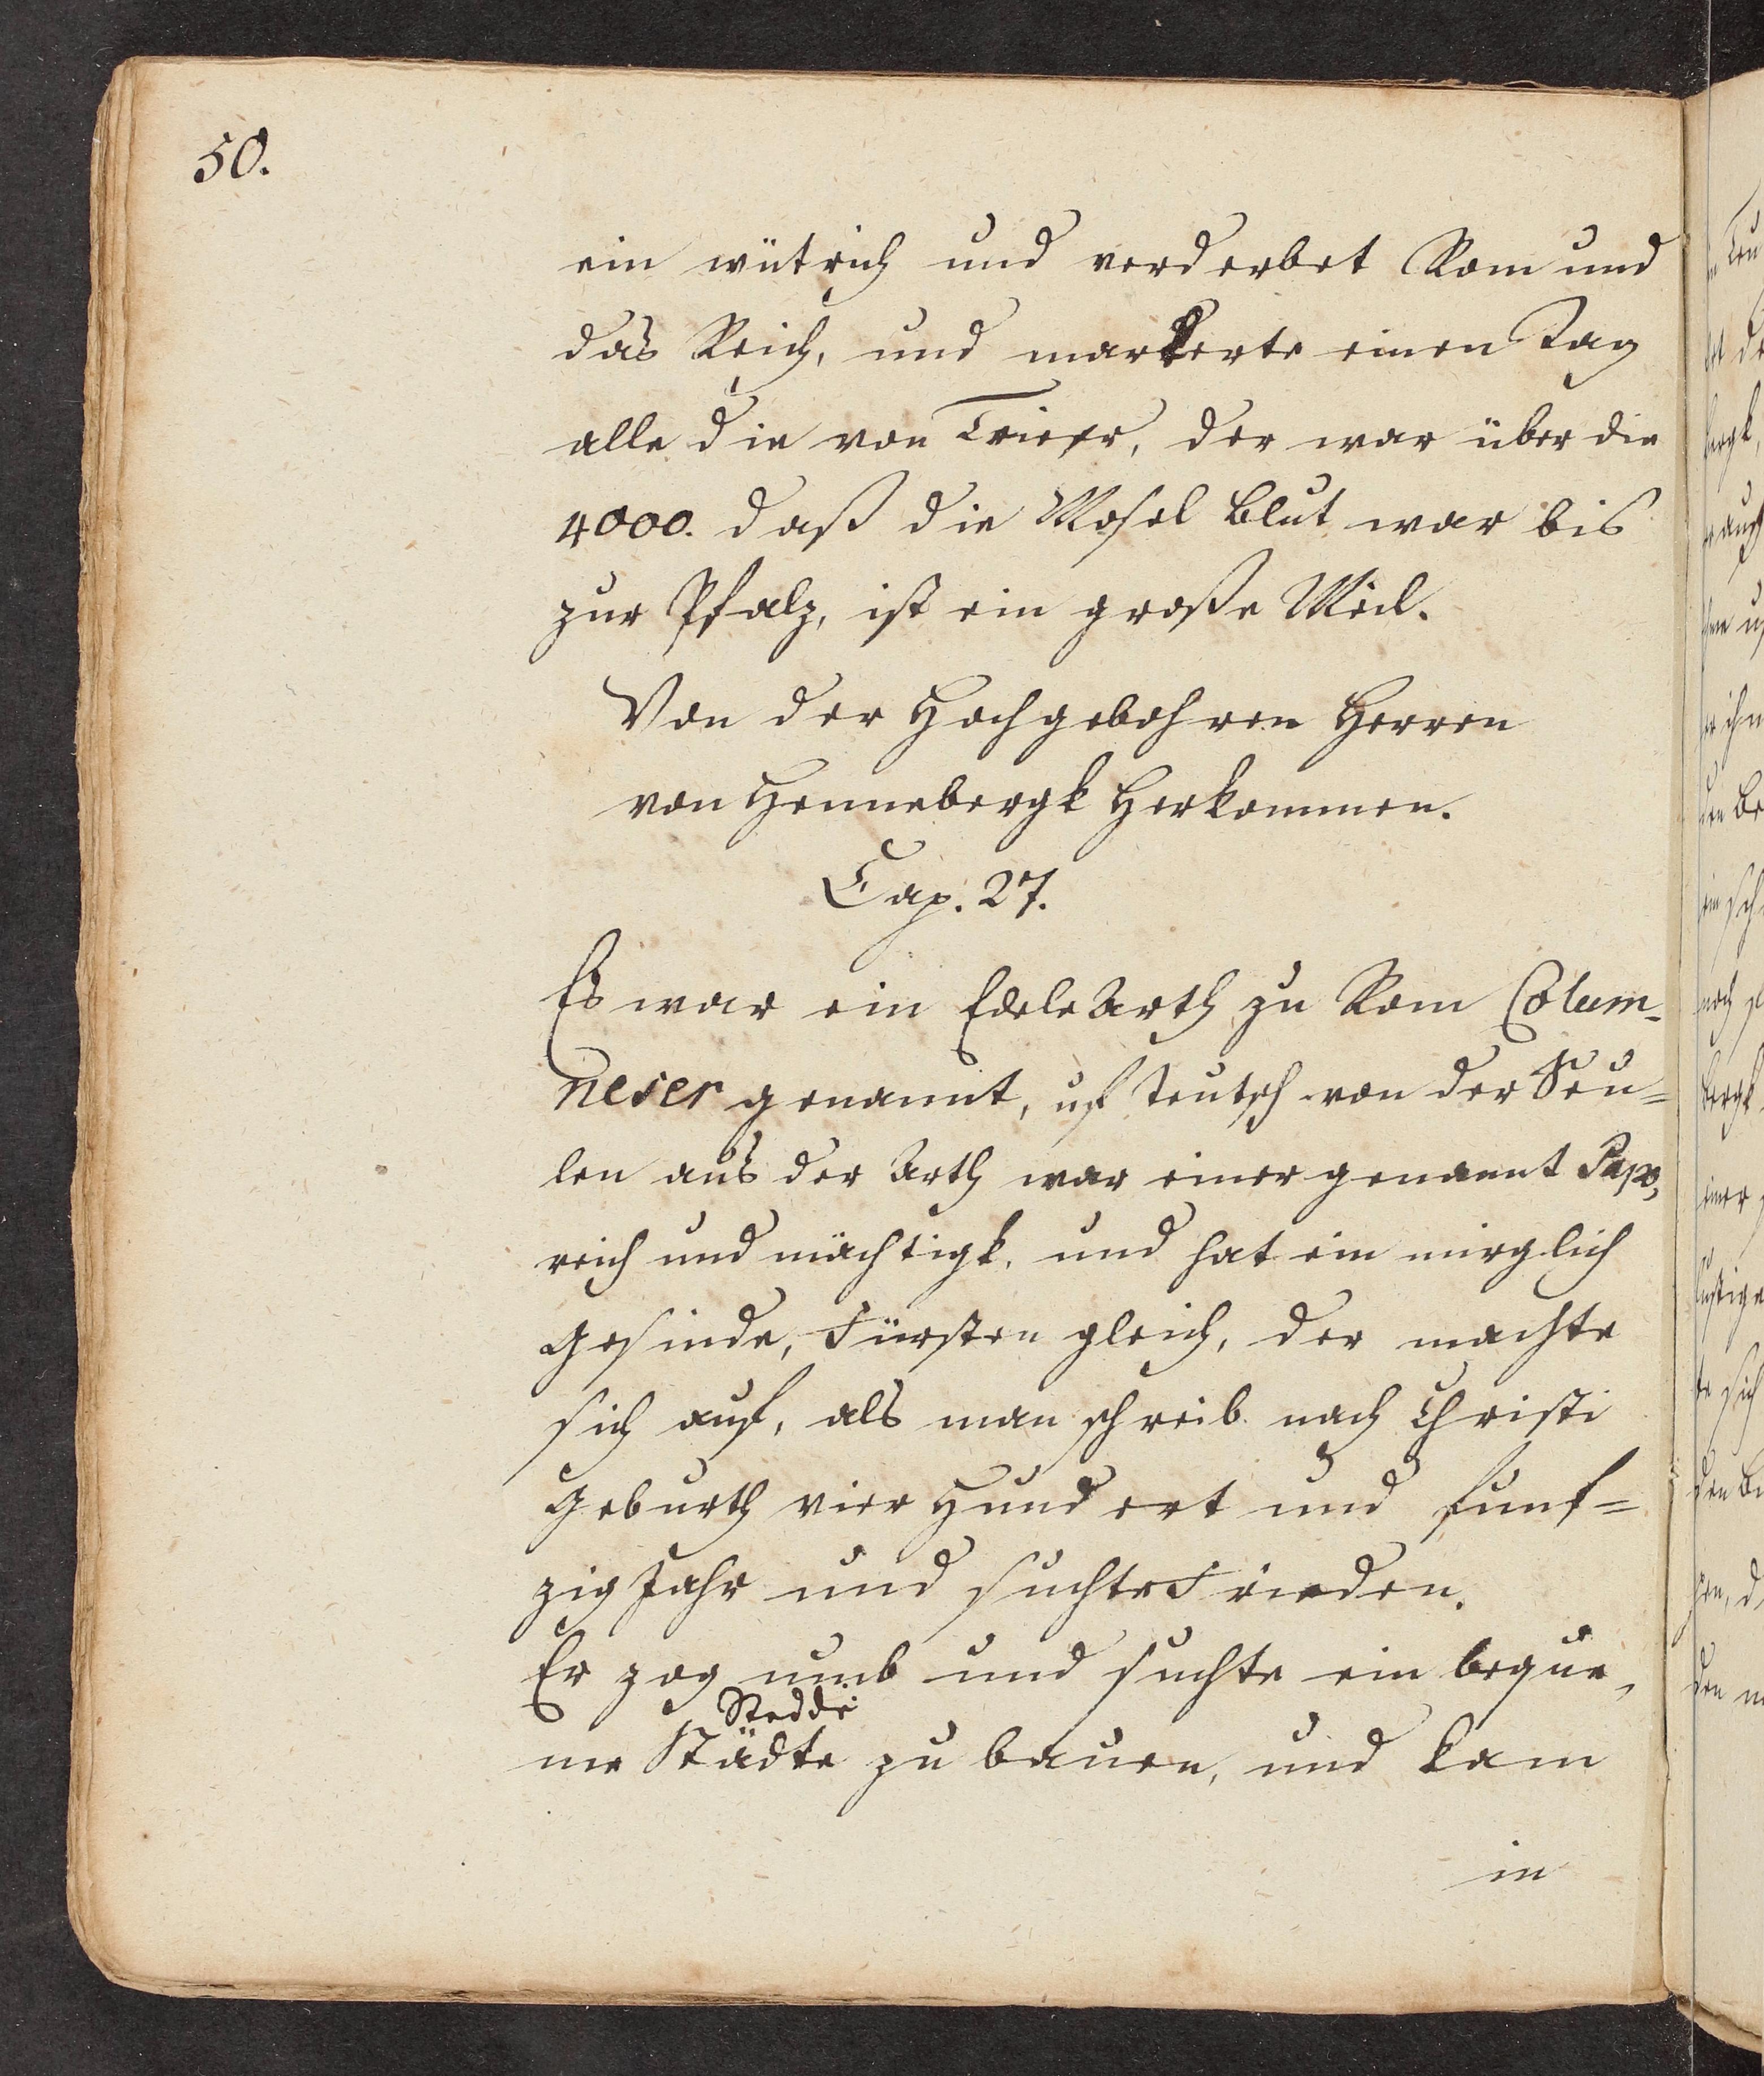 50.
ein wütrich und verderbet Rom und
das Reich, und markerte einen Tag
alle die von Trier, der war über die
4000. daß die Mosel Blut war bis
zur Pfalz, ist ein große Meil.
Von der Hochgebohren Herren
von Hennebergk Herkommen.
Cap. 27.
Es war ein Edele Arth zu Rom Colum-
neser genannt, uf Teutsch von der Seu=
len aus der Arth war einer genannt Papo,
reich und mächtigk, und hat ein mirglich
Gesinde, Fürsten gleich, der machte
sich auf, als man schreib nach Christi
Geburth vier Hundert und funf=
zig Jahr und suchte Frieden.
Er zog umb und suchte ein beque,
Stedde
me Städte zu bauen, und kam
in